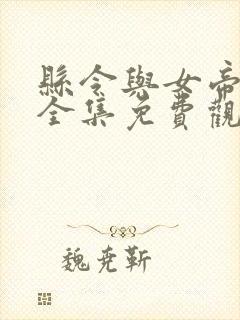 縣令與女帝
全集免費觀
魏尭靳